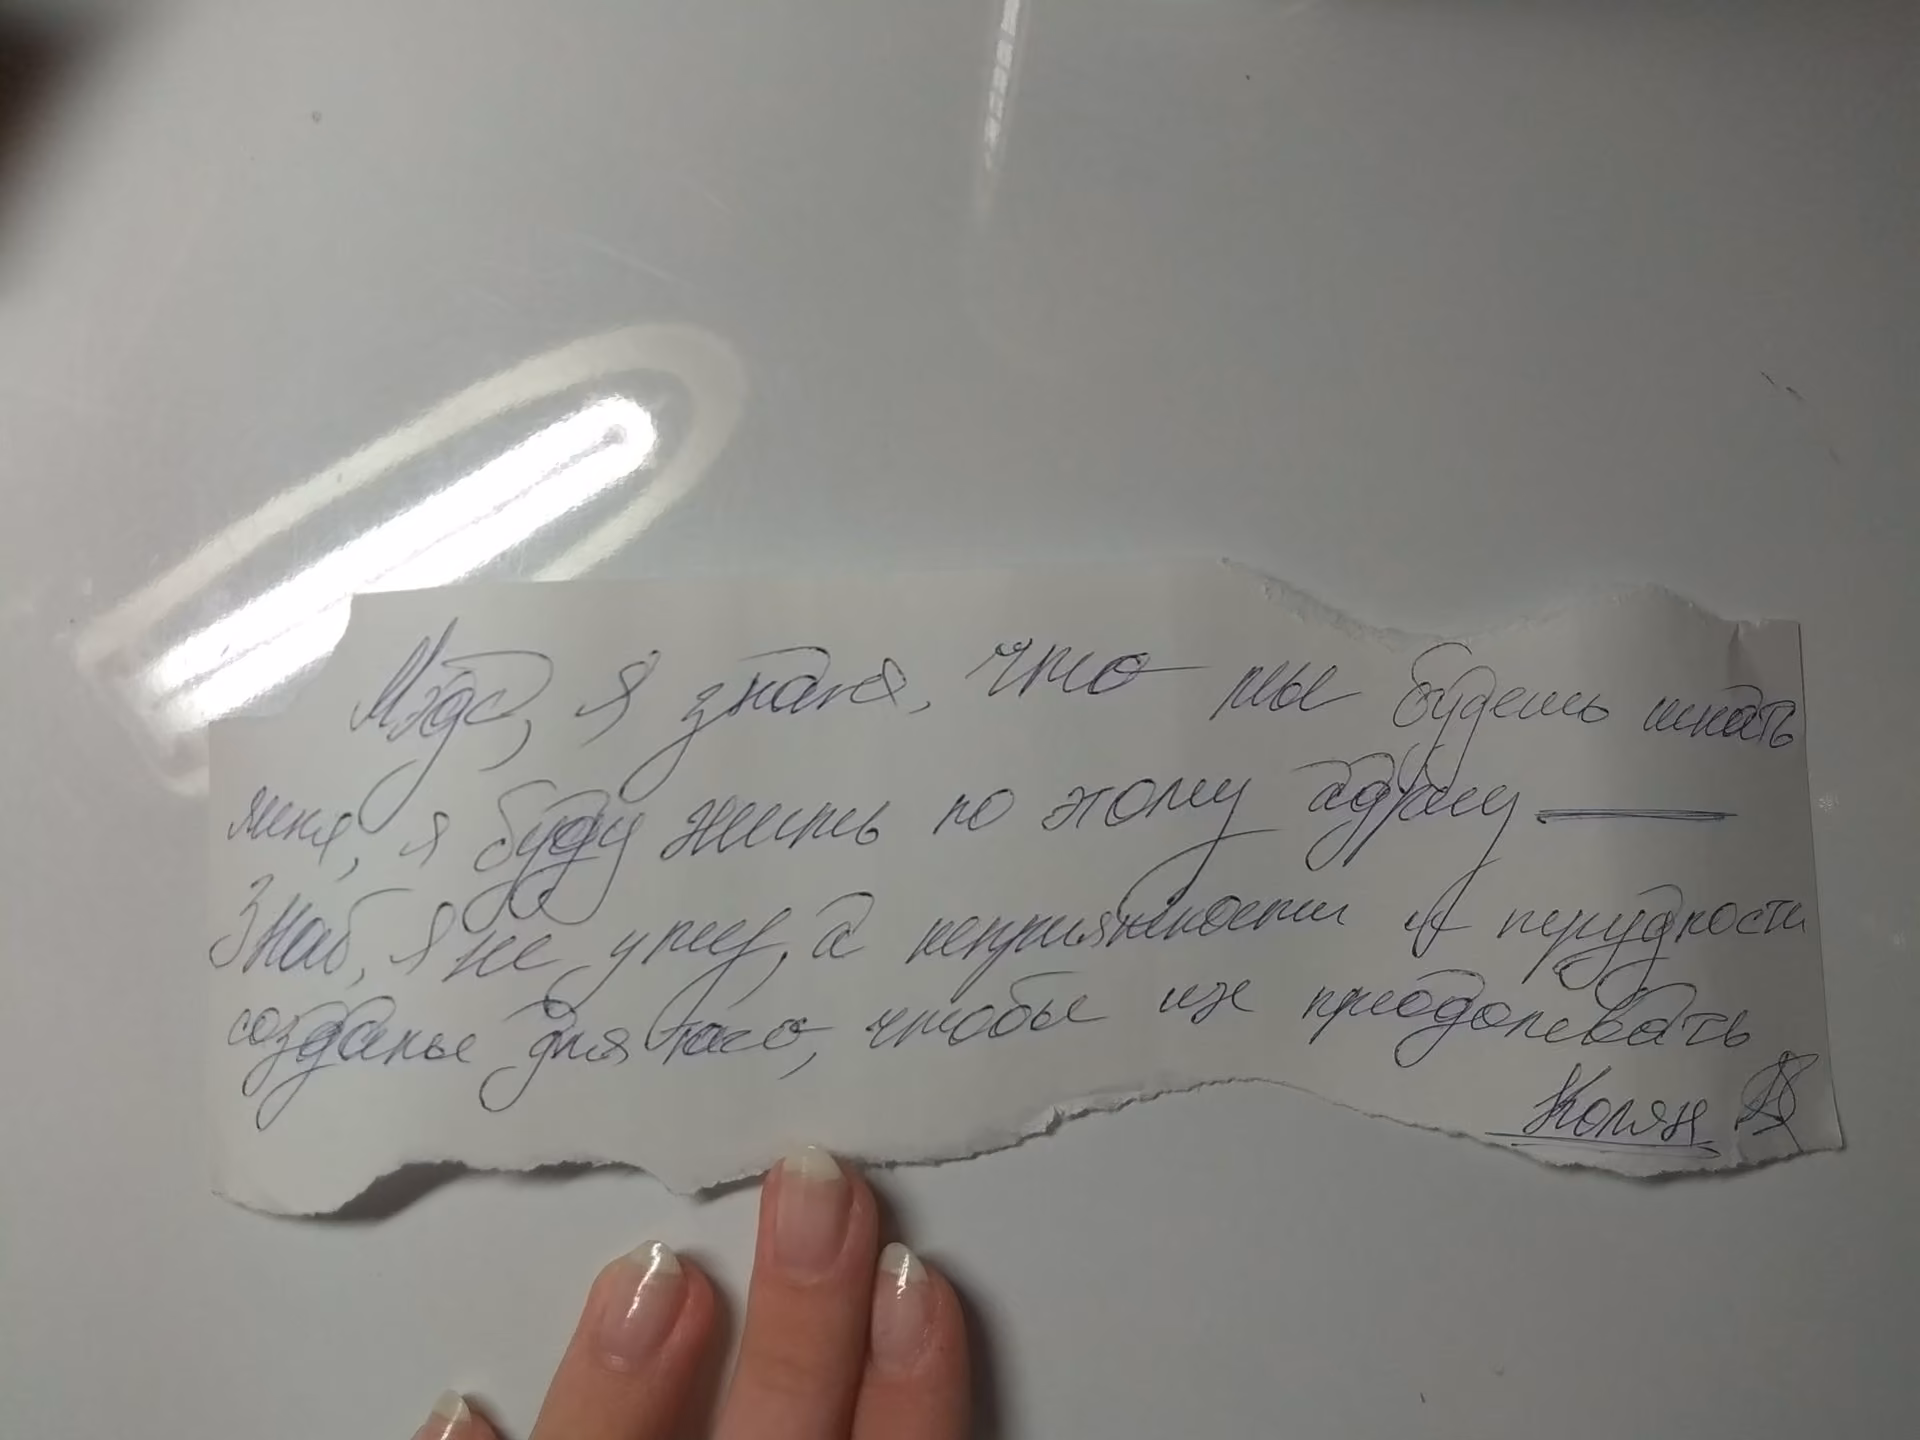 Мэдс, я знаю, что ты будешь искать
меня, я буду жить по этому адресу
Знай, я не умер, а неприятности и трудности
созданы для того, чтобы их преодолевать
Колян